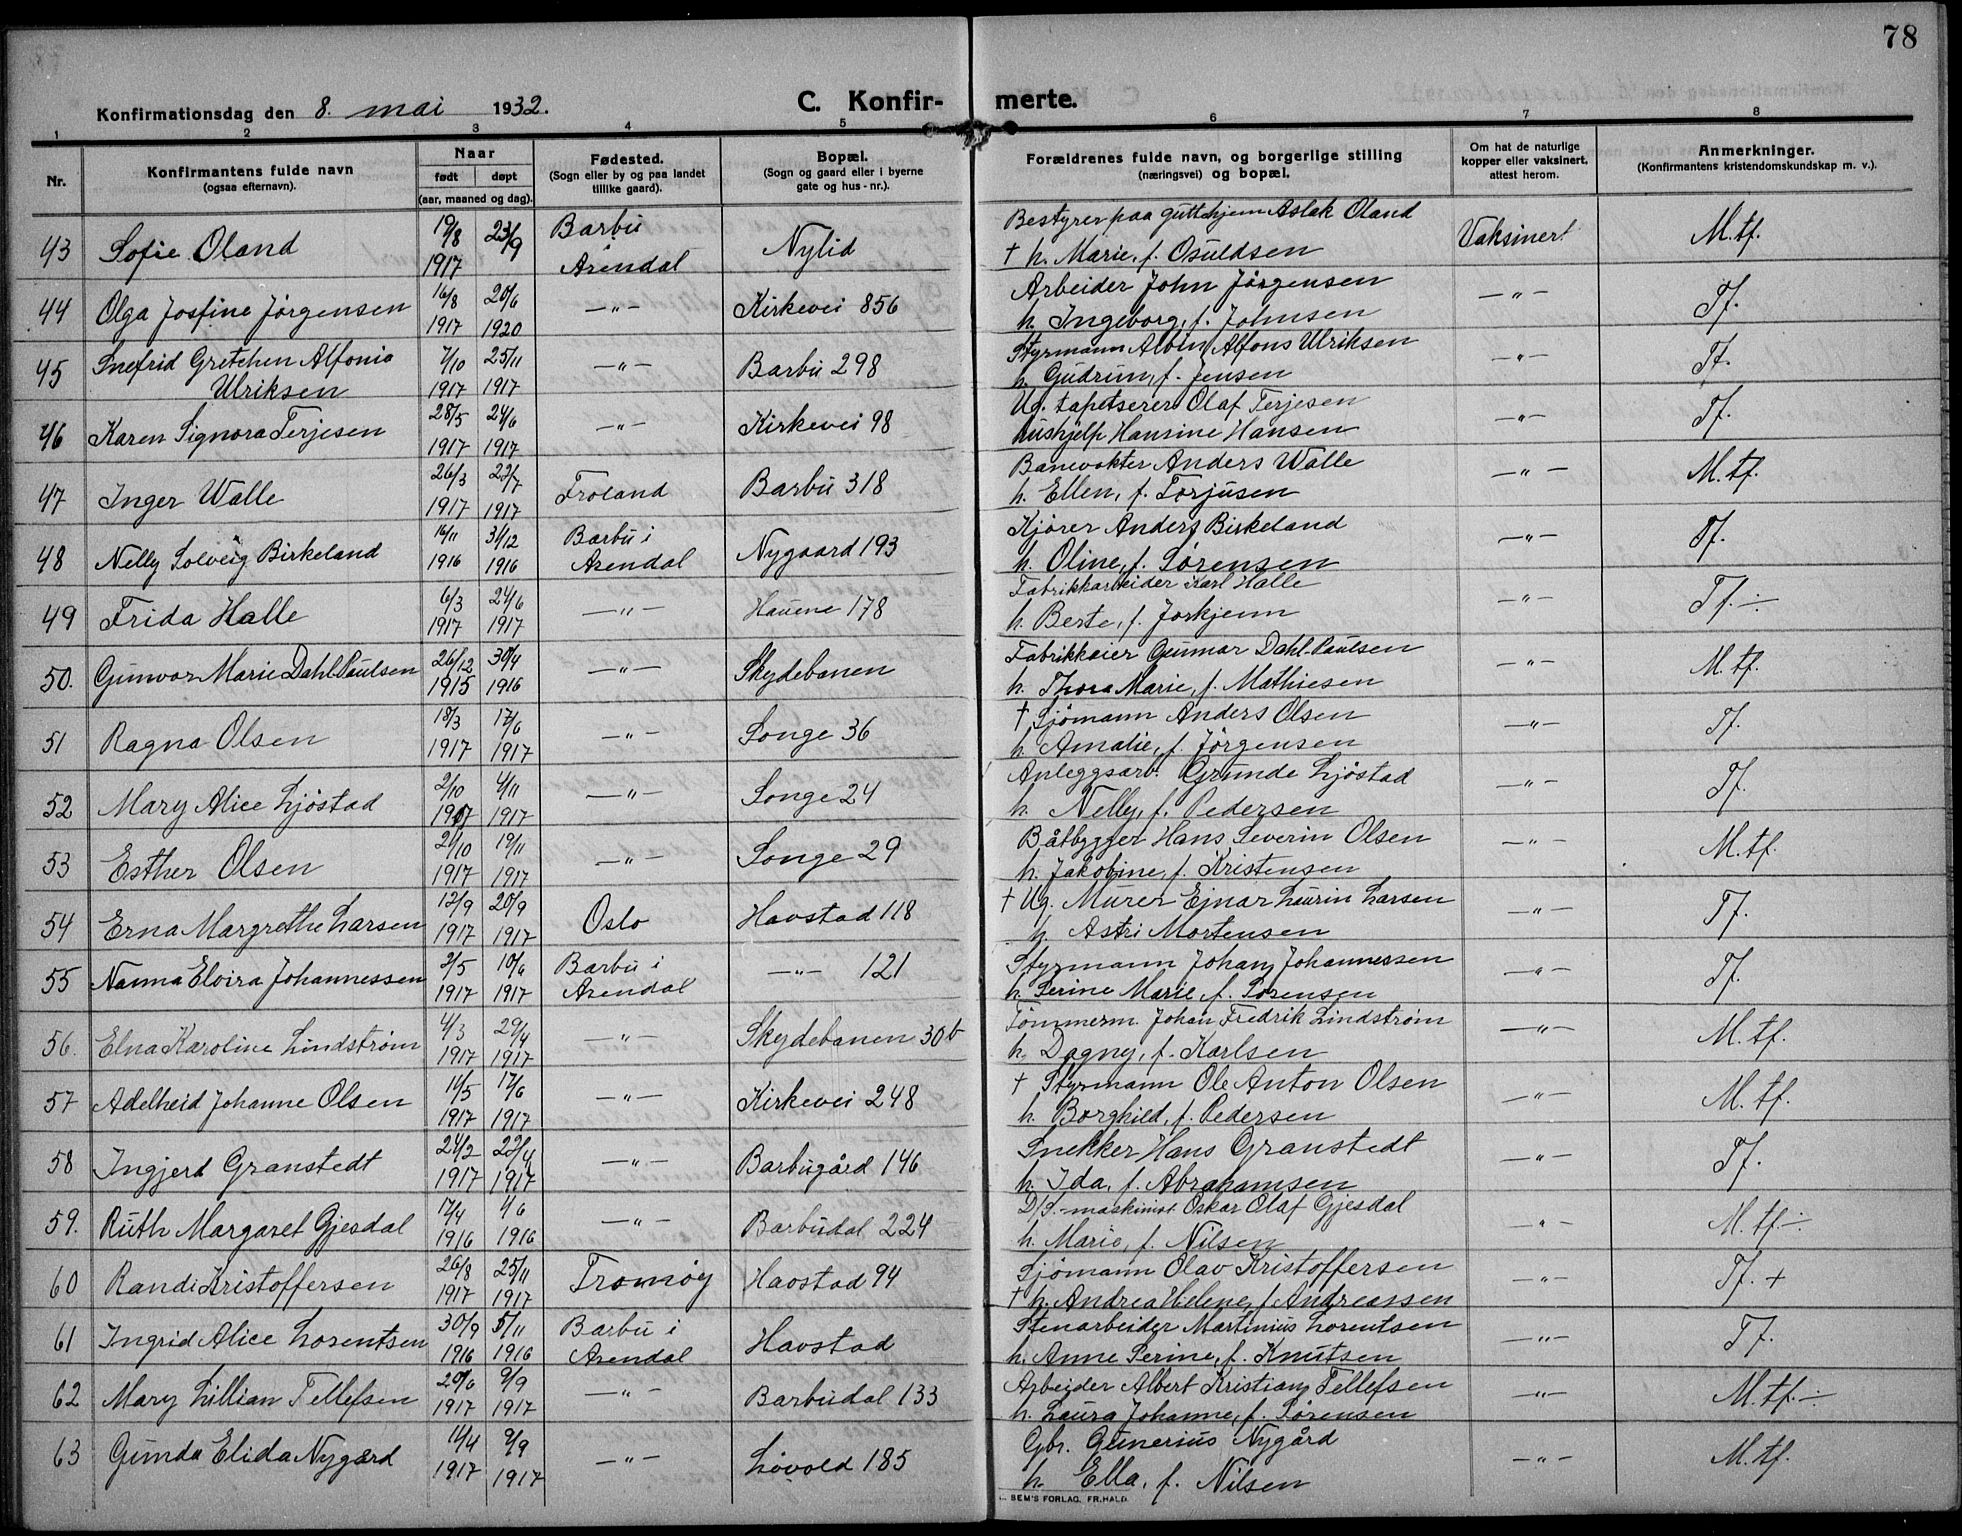 78
Konfirmationsdag den 8. mai 1932. C. Konfirmerte.
1 2 3 4 5 6 7 8
Nr. Konfirmantens fulde navn (ogsaa efternavn). Naar født døpt (aar, maaned og dag). Fødested. (Sogn eller by og paa landet tillike gaard). Bopæl. (Sogn og gaard eller i byerne gate og hus-nr.). Forældrenes fulde navn, og borgerlige stilling (næringsvei) og bopæl. Om hat de naturlige kopper eller vaksinert, attest herom. Anmerkninger. (Konfirmantens kristendomskundskap m. v.).
43 Sofie Oland 19/8 1917 23/9 Barbu Arendal Nylid Bestyrer paa gutthjem Aslak Oland Vaksinert M.tf.
† h. Marie, f. Osuldsen
44 Olga Josfine Jørgensen 16/8 1917 20/6 1920 —"— Kirkevei 856 Arbeider John Jørgensen —"— Tf.
h. Ingeborg, f. Johnsen
45 Snefrid Gretchen Alfonia Ulriksen 7/10 1917 25/11 1917 —"— Barbu 298 Styrmann Albin Alfons Ulriksen —"— Tf.
h. Gudrun, f. Jensen
46 Karen Signora Terjesen 28/5 1917 24/6 1917 —"— Kirkevei 98 Ug. tapetserer Olaf Terjesen —"— Tf.
hushjelp Hansine Hansen
47 Inger Walle 26/3 1917 22/7 1917 Froland Barbu 318 Banevokter Anders Walle —"— M.tf.
h. Ellen, f. Torjusen
48 Nelly Solveig Birkeland 16/11 1916 31/12 1916 Barbu i Arendal Nygaard 193 Kjører Anders Birkeland —"— Tf.
h. Oline, f. Sørensen
49 Frida Halle 6/3 1917 24/6 1917 —"— Hauene 178 Fabrikkarbeider Karl Halle —"— Tf. ÷
h. Berte, f. Jorkjenn
50. Gunvor Marie Dahl-Paulsen 26/12 1915 30/4 1916 —"— Skydebanen Fabrikkeier Gunnar Dahl-Paulsen —"— M.tf.
h. Thora Marie, f. Mathiesen
51 Ragna Olsen 18/3 1917 17/6 1917 —"— Songe 36 † Sjømann Anders Olsen —"— Tf.
h. Amalie, f. Jørgensen
52 Mary Alice Ljøstad 2/10 1917 4/11 1917 —"— Songe 24 Anleggsarb. Grunde Ljøstad —"— Tf.
h. Nelly, f. Pedersen
53 Esther Olsen 21/10 1917 19/11 1917 —"— Songe 29 Båtbygger Hans Severin Olsen —"— M.tf.
h. Jakobine, f. Kristensen
54 Erna Margrethe Larsen 12/9 1917 20/9 1917 Oslo Havstad 118 † Ug. Murer Ejnar Laurin Larsen —"— Tf.
h. Astri Mortensen
55 Nanna Elvira Johannessen 2/5 1917 10/6 1917 Barbu i Arendal —"— 121 Styrmann Johan Johannessen —"— Tf.
h. Serine Marie, f. Sørensen
56. Elna Karoline Lindstrøm 4/3 1917 29/4 1917 —"— Skydebanen 30b Tømmerm. Johan Fredrik Lindstrøm —"— M.tf.
h. Dagny, f. Karlsen
57 Adelheid Johanne Olsen 11/5 1917 17/6 1917 —"— Kirkevei 248 † Styrmann Ole Anton Olsen —"— M.tf.
h. Borghild, f. Pedersen
58 Ingjerd Granstedt 24/2 1917 22/4 1917 —"— Barbugård 146 Snekker Hans Granstedt —"— Tf.
h. Ida, f. Abrahamsen
59. Ruth Margaret Gjesdal 17/4 1916 4/6 1916 —"— Barbudal 224 D/S.-maskinist Oskar Olaf Gjesdal —"— M.tf. ÷
h. Marie, f. Nilsen
60 Randi Kristoffersen 26/8 1917 25/11 1917 Tromøy Havstad 94 Sjømann Olav Kristoffersen —"— Tf. +
† h. Andrea Helene, f. Andreassen
61 Ingrid Alice Lorentsen 30/9 1916 5/11 1916 Barbu i Arendal Havstad Stenarbeider Martinius Lorentsen —"— Tf.
h. Anne Serine, f. Knutsen
62 Mary Lillian Tellefsen 20/6 1917 9/9 1917 —"— Barbudal 133 Arbeider Albert Kristian Tellefsen —"— M.tf. ÷
h. Laura Johanne, f. Sørensen
63 Gunda Elida Nygård 11/4 1917 9/9 1917 —"— Løvold 185 Gbr. Gunerius Nygård —"— M.tf.
h. Ella, f. Nilsen
SEM'S FORLAG, FR.HALD.